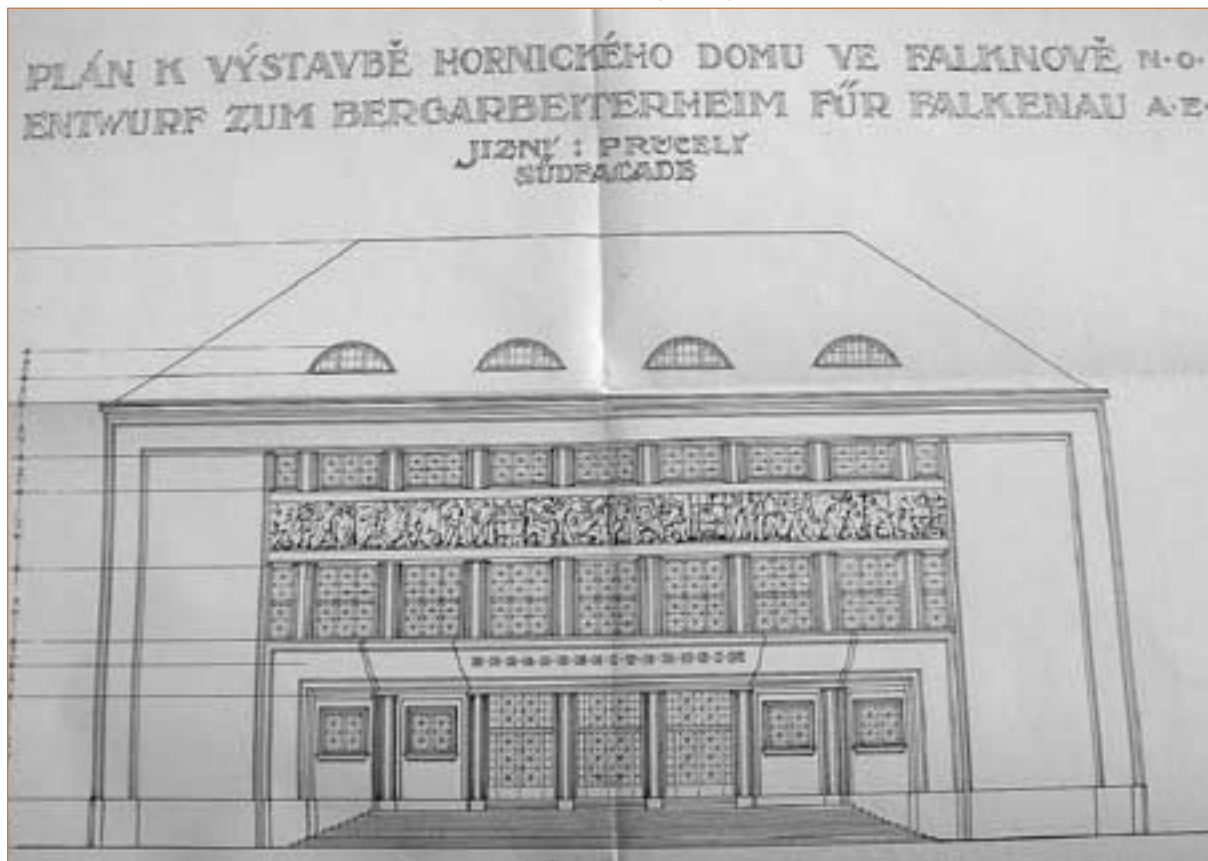 PLÁN K VÝSTAVBĚ HORNICKÉHO DOMU VE FALKNOVĚ N.O.
ENTWURF ZUM BERGARBEITERHEIM FŰR FALKENAU A.E.
JIZNÍ : PRŮČELÝ
SŰDFACADE